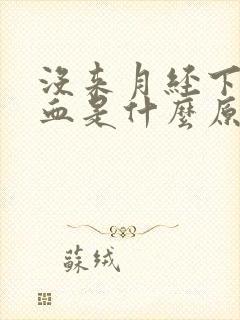 没来月经下
血是什麼原
蘇绒